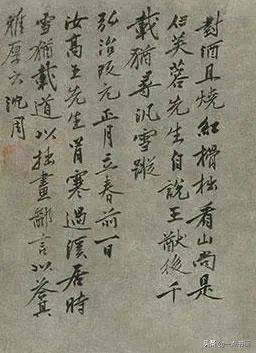 對酒且燒紅榾柮看山尚是
住芙蓉先生自說王猷後千
載猶尋汎雪蹤
弘治改元正月立春前一日
汝高王先生冒寒過溪居時
雪猶載道以拙畫鄙言以答其
雅厚云沈周
头条 @一点书画